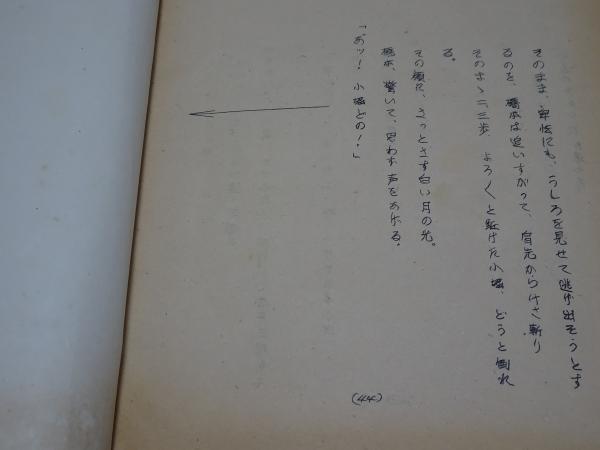 そのまま、卑怯にも、うしろを見せて逃げ出そうとす
るのを、橋本は追いすがって、肩先からけさ斬り
そのまゝ二、三歩、よろ〱と駈けた小堀、どうと倒れ
る。
その顔に、さっとさす白い月の光。
橋本、驚いて、思わず声をあげる。
「あッ！小堀どの！」
(44)